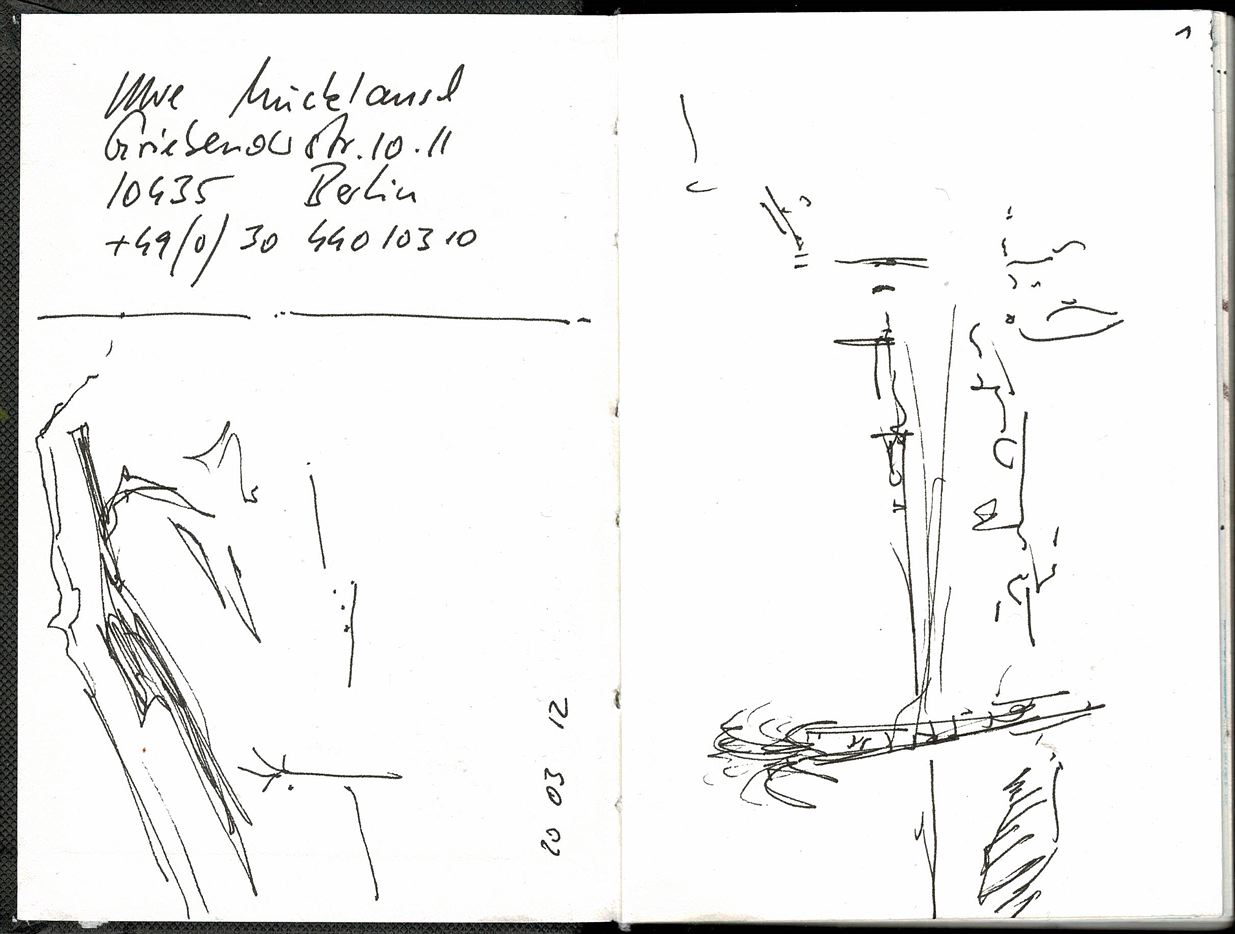 Uwe Mücklausch
Griebenow str. 10-11
10435 Berlin
+49/0/ 30 440 103 10
20 03 12
1